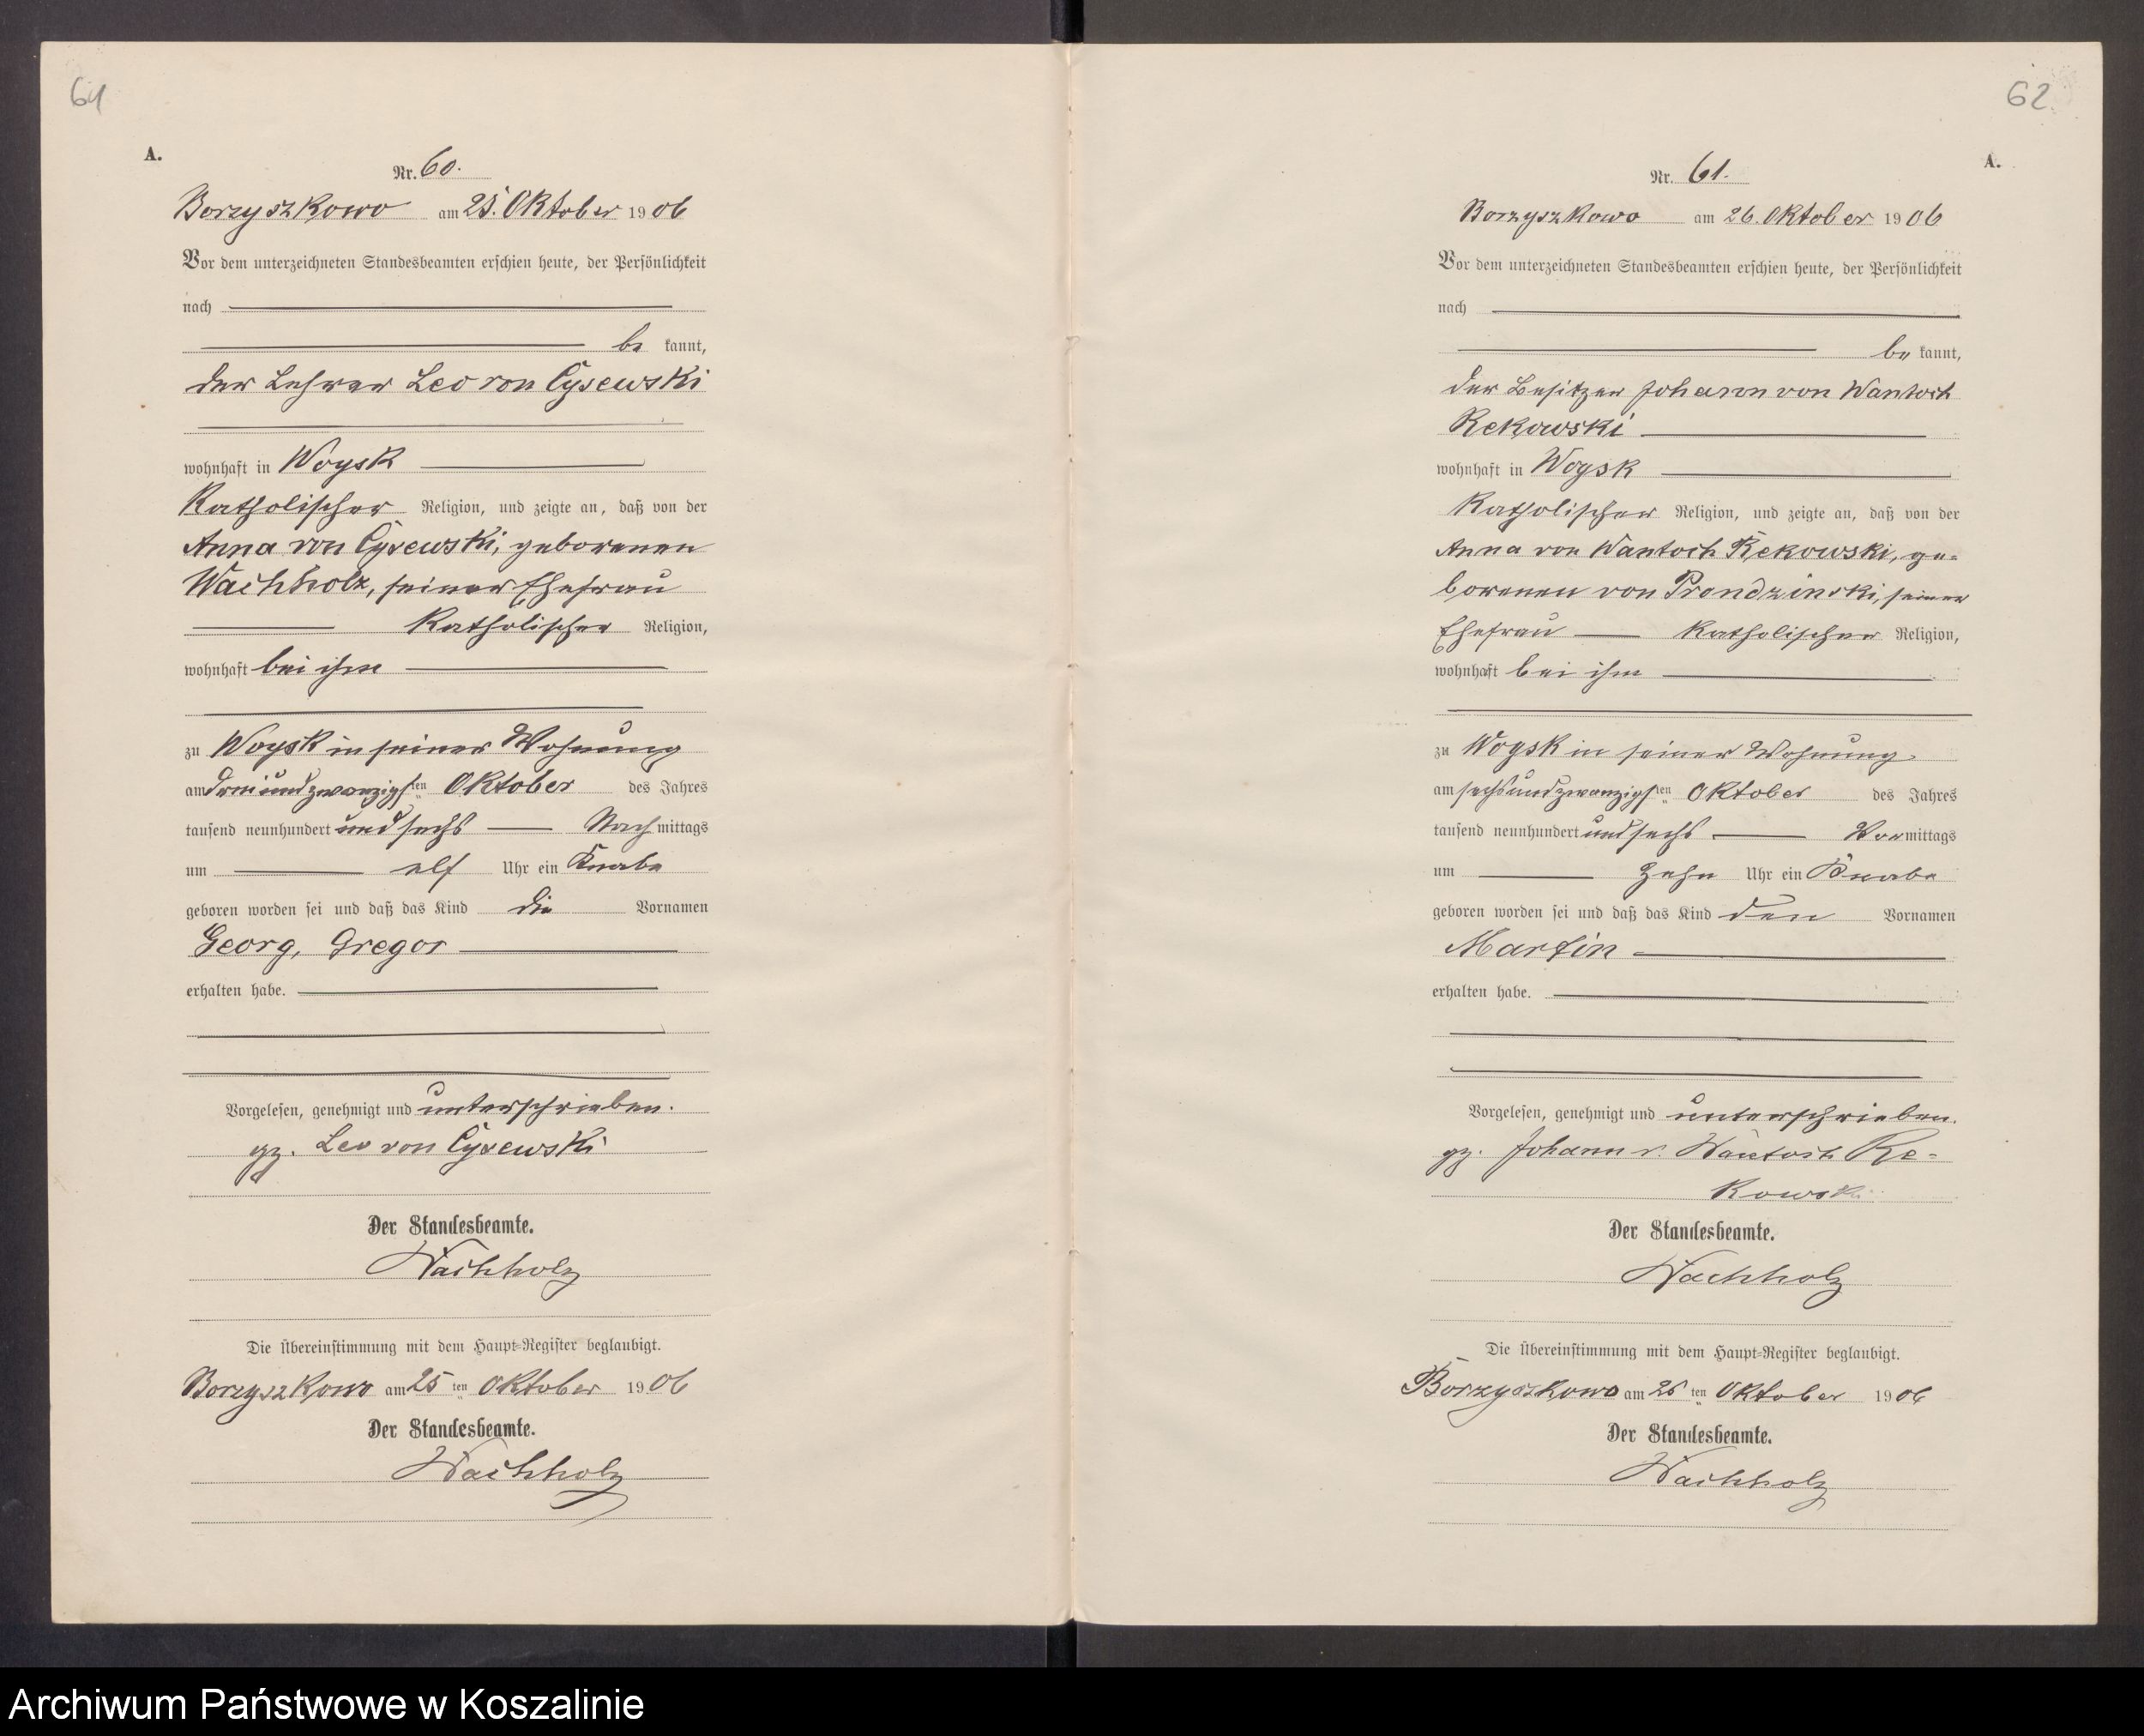 61
A.
Nr. 60.
Borzyszkowo am 25. Oktober 1906
Vor dem unterzeichneten Standesbeamten erschien heute, der Persönlichkeit
nach
be kannt,
der Lehrer Leo von Cysewski
wohnhaft in Woysk
katholischer Religion, und zeigte an, daß von der
Anna von Cysewski, geborenen
Wachholz, seiner Ehefrau
katholischer Religion,
wohnhaft bei ihm
zu Woysk in seiner Wohnung
am dreiundzwanzigsten Oktober des Jahres
tausend neunhundert und sechs Nachmittags
um elf Uhr ein Knabe
geboren worden sei und daß das Kind die Vornamen
Georg, Gregor
erhalten habe.
Vorgelesen, genehmigt und unterschrieben.
gz. Leo von Cysewski
Der Standesbeamte.
Wachholz
Die Übereinstimmung mit dem Haupt-Register beglaubigt.
Borzyszkowo am 25 ten Oktober 1906
Der Standesbeamte.
Wachholz
62
A.
Nr. 61.
Borzyszkowo am 26. Oktober 1906
Vor dem unterzeichneten Standesbeamten erschien heute, der Persönlichkeit
nach
be kannt,
der Besitzer Johann von Wantoch
Rekowski
wohnhaft in Woysk
katholischer Religion, und zeigte an, daß von der
Anna von Wantoch Rekowski, ge-
borenen von Prondzinski, seiner
Ehefrau katholischer Religion,
wohnhaft bei ihm
zu Woysk in seiner Wohnung
am sechsundzwanzigsten Oktober des Jahres
tausend neunhundert und sechs Vormittags
um zehn Uhr ein Knabe
geboren worden sei und daß das Kind den Vornamen
Martin
erhalten habe.
Vorgelesen, genehmigt und unterschrieben.
gz. Johann v. Wantoch Re-
kowski
Der Standesbeamte.
Wachholz
Die Übereinstimmung mit dem Haupt-Register beglaubigt.
Borzyszkowo am 26 ten Oktober 1906
Der Standesbeamte.
Wachholz
Archiwum Państwowe w Koszalinie